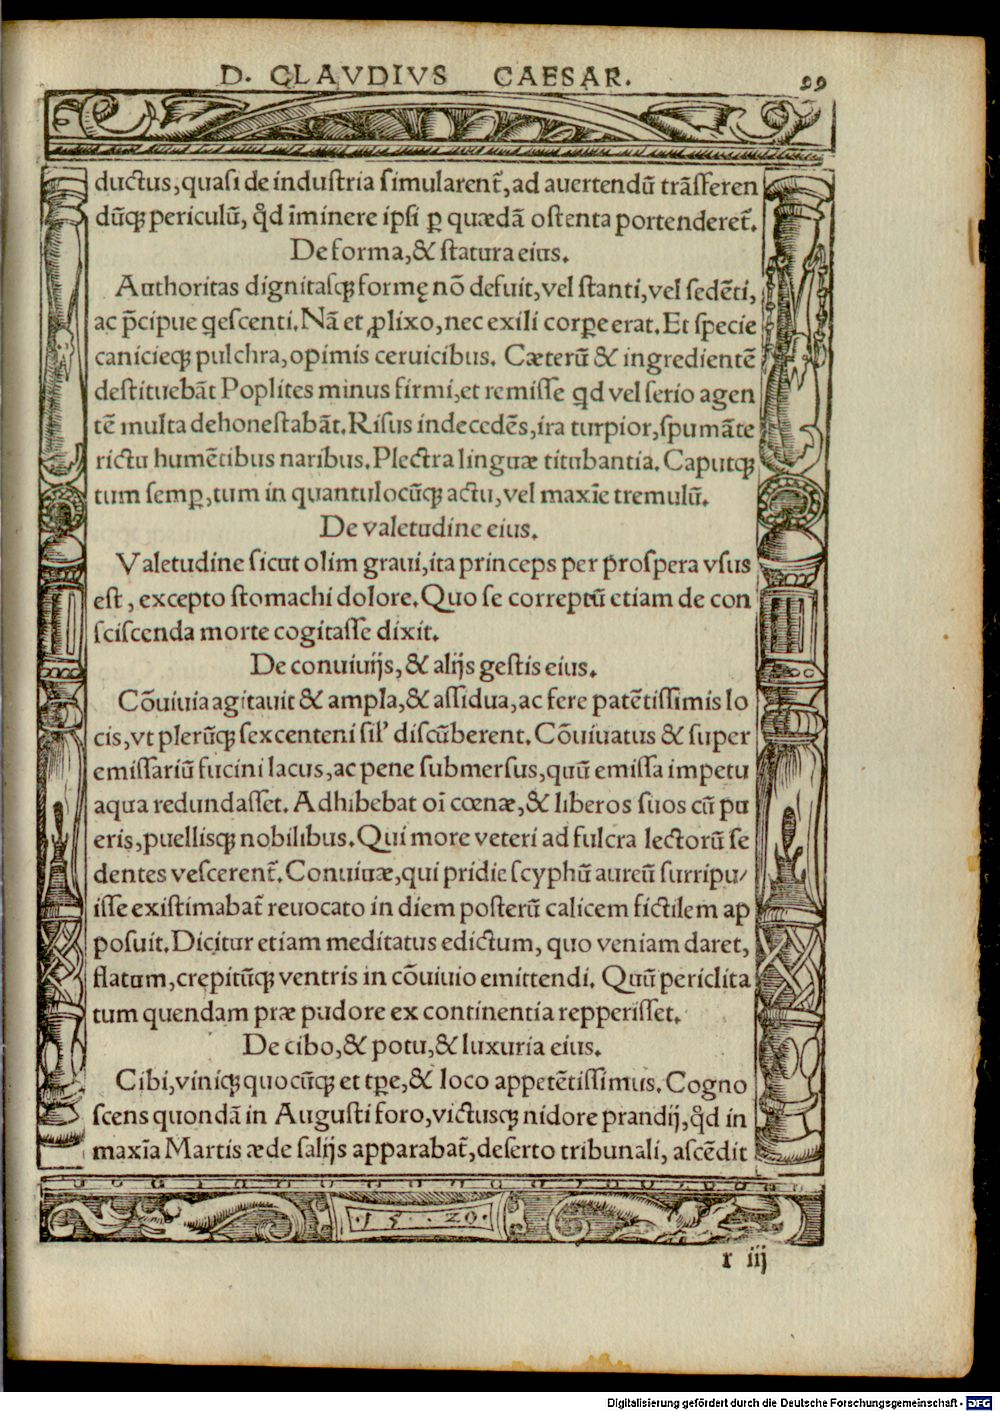 D. CLAVDIVS CAESAR. 99
ductus, quasi de industria simularent᷑, ad auertendũ trãsferen
dũqꝫ periculũ, qd̛ ĩminere ipsi ꝑ quædã ostenta portenderet᷑.
De forma, & statura eius.
Authoritas dignitasqꝫ formę nõ defuit, vel stanti, vel sedẽti,
ac p̃cipue ꝗescenti. Nã et ꝓlixo, nec exili corꝑe erat. Et specie
canicieqꝫ pulchra, opimis ceruicibus. Cæterũ & ingredientẽ
destituebãt Poplites minus firmi, et remisse ꝗd vel serio agen
tẽ multa dehonestabãt. Risus indecedẽs, ira turpior, spumãte
rictu humẽtibus naribus. Plectra linguæ titubantia. Caputqꝫ
tum semꝑ, tum in quantulocũqꝫ actu, vel maxĩe tremulũ.
De valetudine eius.
Valetudine sicut olim graui, ita princeps per prospera vsus
est, excepto stomachi dolore. Quo se correptũ etiam de con
sciscenda morte cogitasse dixit.
De conuiuijs, & alijs gestis eius.
Cõuiuia agitauit & ampla, & assidua, ac fere patẽtissimis lo
cis, vt plerũqꝫ sexcenteni sil' discũberent. Cõuiuatus & super
emissariũ fucini lacus, ac pene submersus, quũ emissa impetu
aqua redundasset. Adhibebat oĩ cœnæ, & liberos suos cũ pu
eris, puellisqꝫ nobilibus. Qui more veteri ad fulcra lectorũ se
dentes vescerent᷑. Conuiuæ, qui pridie scyphũ aureũ surripu/
isse existimabat᷑ reuocato in diem posterũ calicem fictilem ap
posuit. Dicitur etiam meditatus edictum, quo veniam daret,
flatum, crepitũqꝫ ventris in cõuiuio emittendi. Quũ periclita
tum quendam præ pudore ex continentia repperisset.
De cibo, & potu, & luxuria eius.
Cibi, viniqꝫ quocũqꝫ et tꝑe, & loco appetẽtissimus. Cogno
scens quondã in Augusti foro, victusqꝫ nidore prandij, qd̛ in
maxĩa Martis æde salijs apparabat᷑, deserto tribunali, ascẽdit
·15··20·
r iij
Digitalisierung gefördert durch die Deutsche Forschungsgemeinschaft - DFG